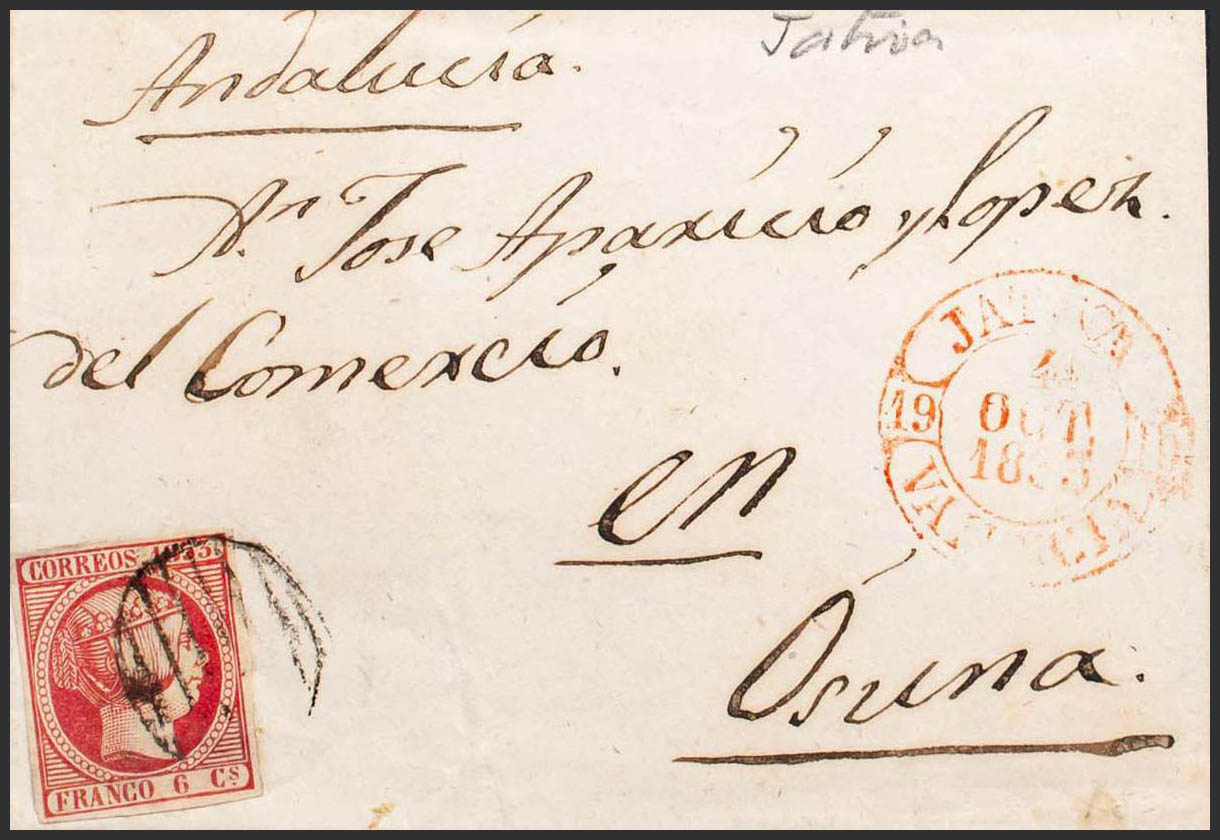 Játiva
Andalucía.
Dn. Jose Aparicio y Lopez.
del Comercio.
en
Osuna.
JATIVA
19
4
OCT.
1853
VALENCIA
CORREOS 1853
FRANCO 6 Cs